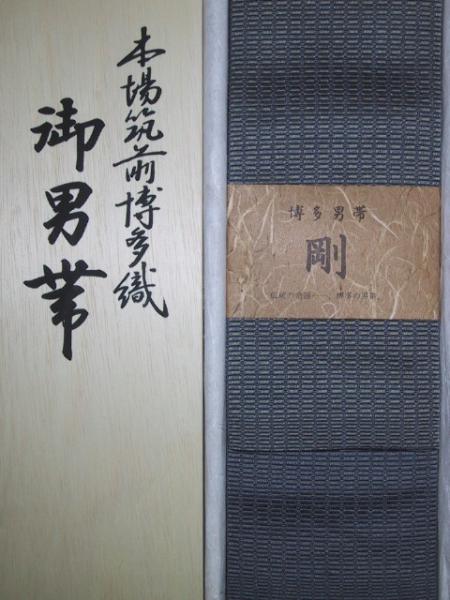 本場筑前博多織
御男帯
博多男帯
剛